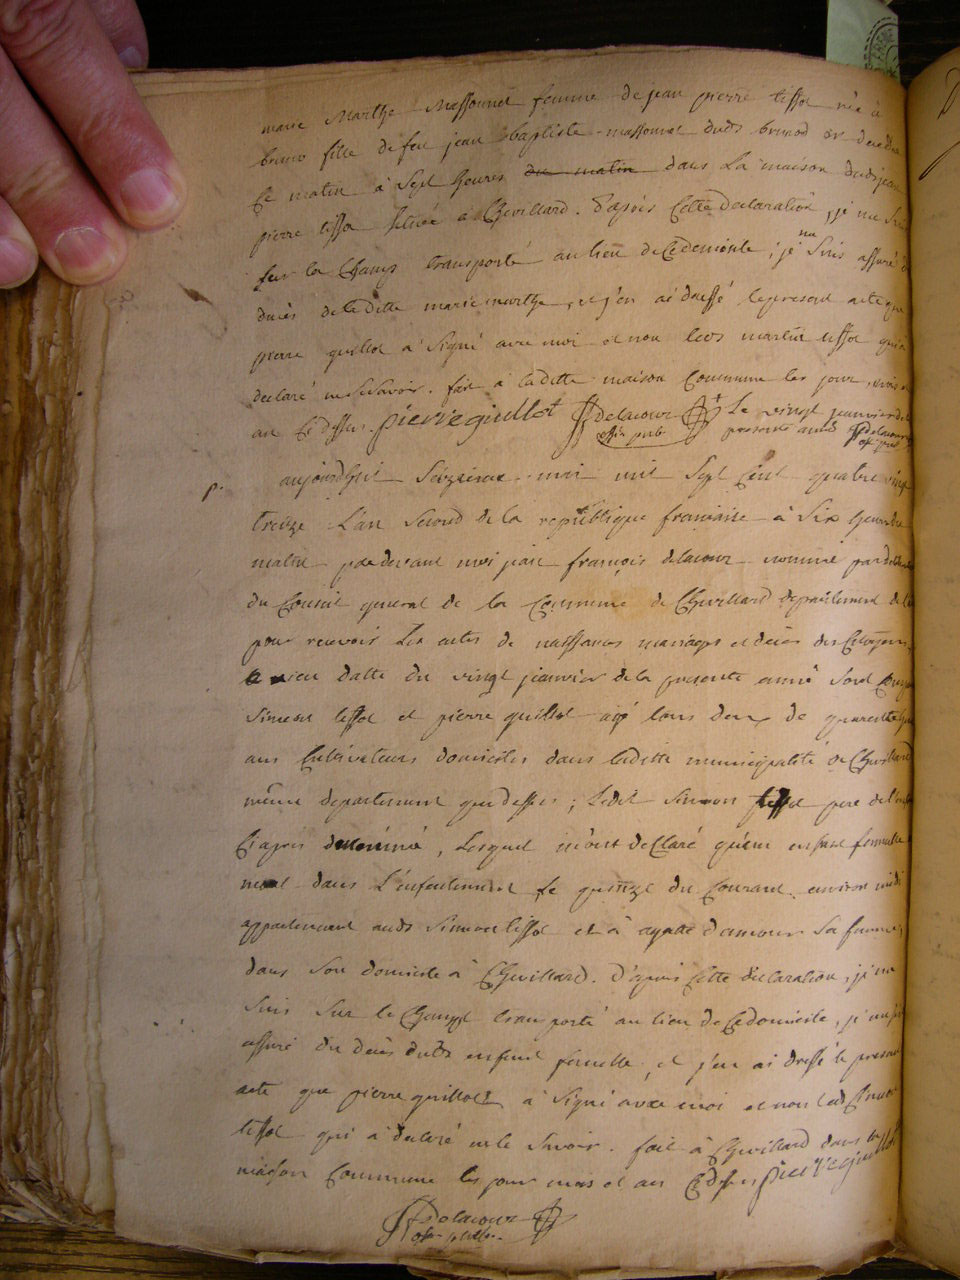 marie Marthe Massonnet femme de jean pierre tissot née à
fille de feu jean baptiste massonnet dudt brenod est décédée
Ce matin à Sept heures du matin dans La maison dudt jean
pierre tissot Située à Chevillard. D'après Cette declaration, je me Suis
Sur le Champ transporté au lieu de Ce domicile ; je me Suis assuré du
decès de laditte marie marthe, et j'en ai dressé le present acte que
pierre guillot a Signé avec moi et non led. tissot qui a
declaré ne Scavoir. fait à laditte maison Commune les jour, mois et
an Cy dessus. pierre guillot Delacour offr. publ. Le vingt janvier de la
presente année Delacour
aujourdhui Seizieme mai mil Sept Cent quatre vingt
treize L'an Second de la republique francaise à Six heures du
matin par devant moi jean françois delacour nommé par
du Conseil general de la Commune de Chevillard departement de l'
pour recevoir Les actes de naissances mariages et decès des Citoyens
en datte du vingt janvier de la presente anné Sont
Simeon tissot et pierre guillot agé tous deux de quarante
ans Cultivateurs domiciliés dans laditte municipalité de Chevillard
même departement que dessus ; Ledit Simeon tissot pere de l'
Ci après, Lesquel m'ont deClaré qu'un enfant femelle
mort dans L'enfentement le quinze du Courant environ midi
appartenant audt Simeon tissot et à agatte d'amour Sa femme,
dans Son domicile à Chevillard. D'après Cette declaration, je me
Suis Sur le Champt transporté au lieu de Ce domicile, je me suis
assuré du decès dudt enfent femelle, et j'en ai dressé le present
acte que pierre guillot à Signé avec moi et non led Simeon
tissot qui à declaré ne le Savoir. fait à Chevillard dans la
maison Commune les jour mois et an Cy dessus pierre guillot
Delacour